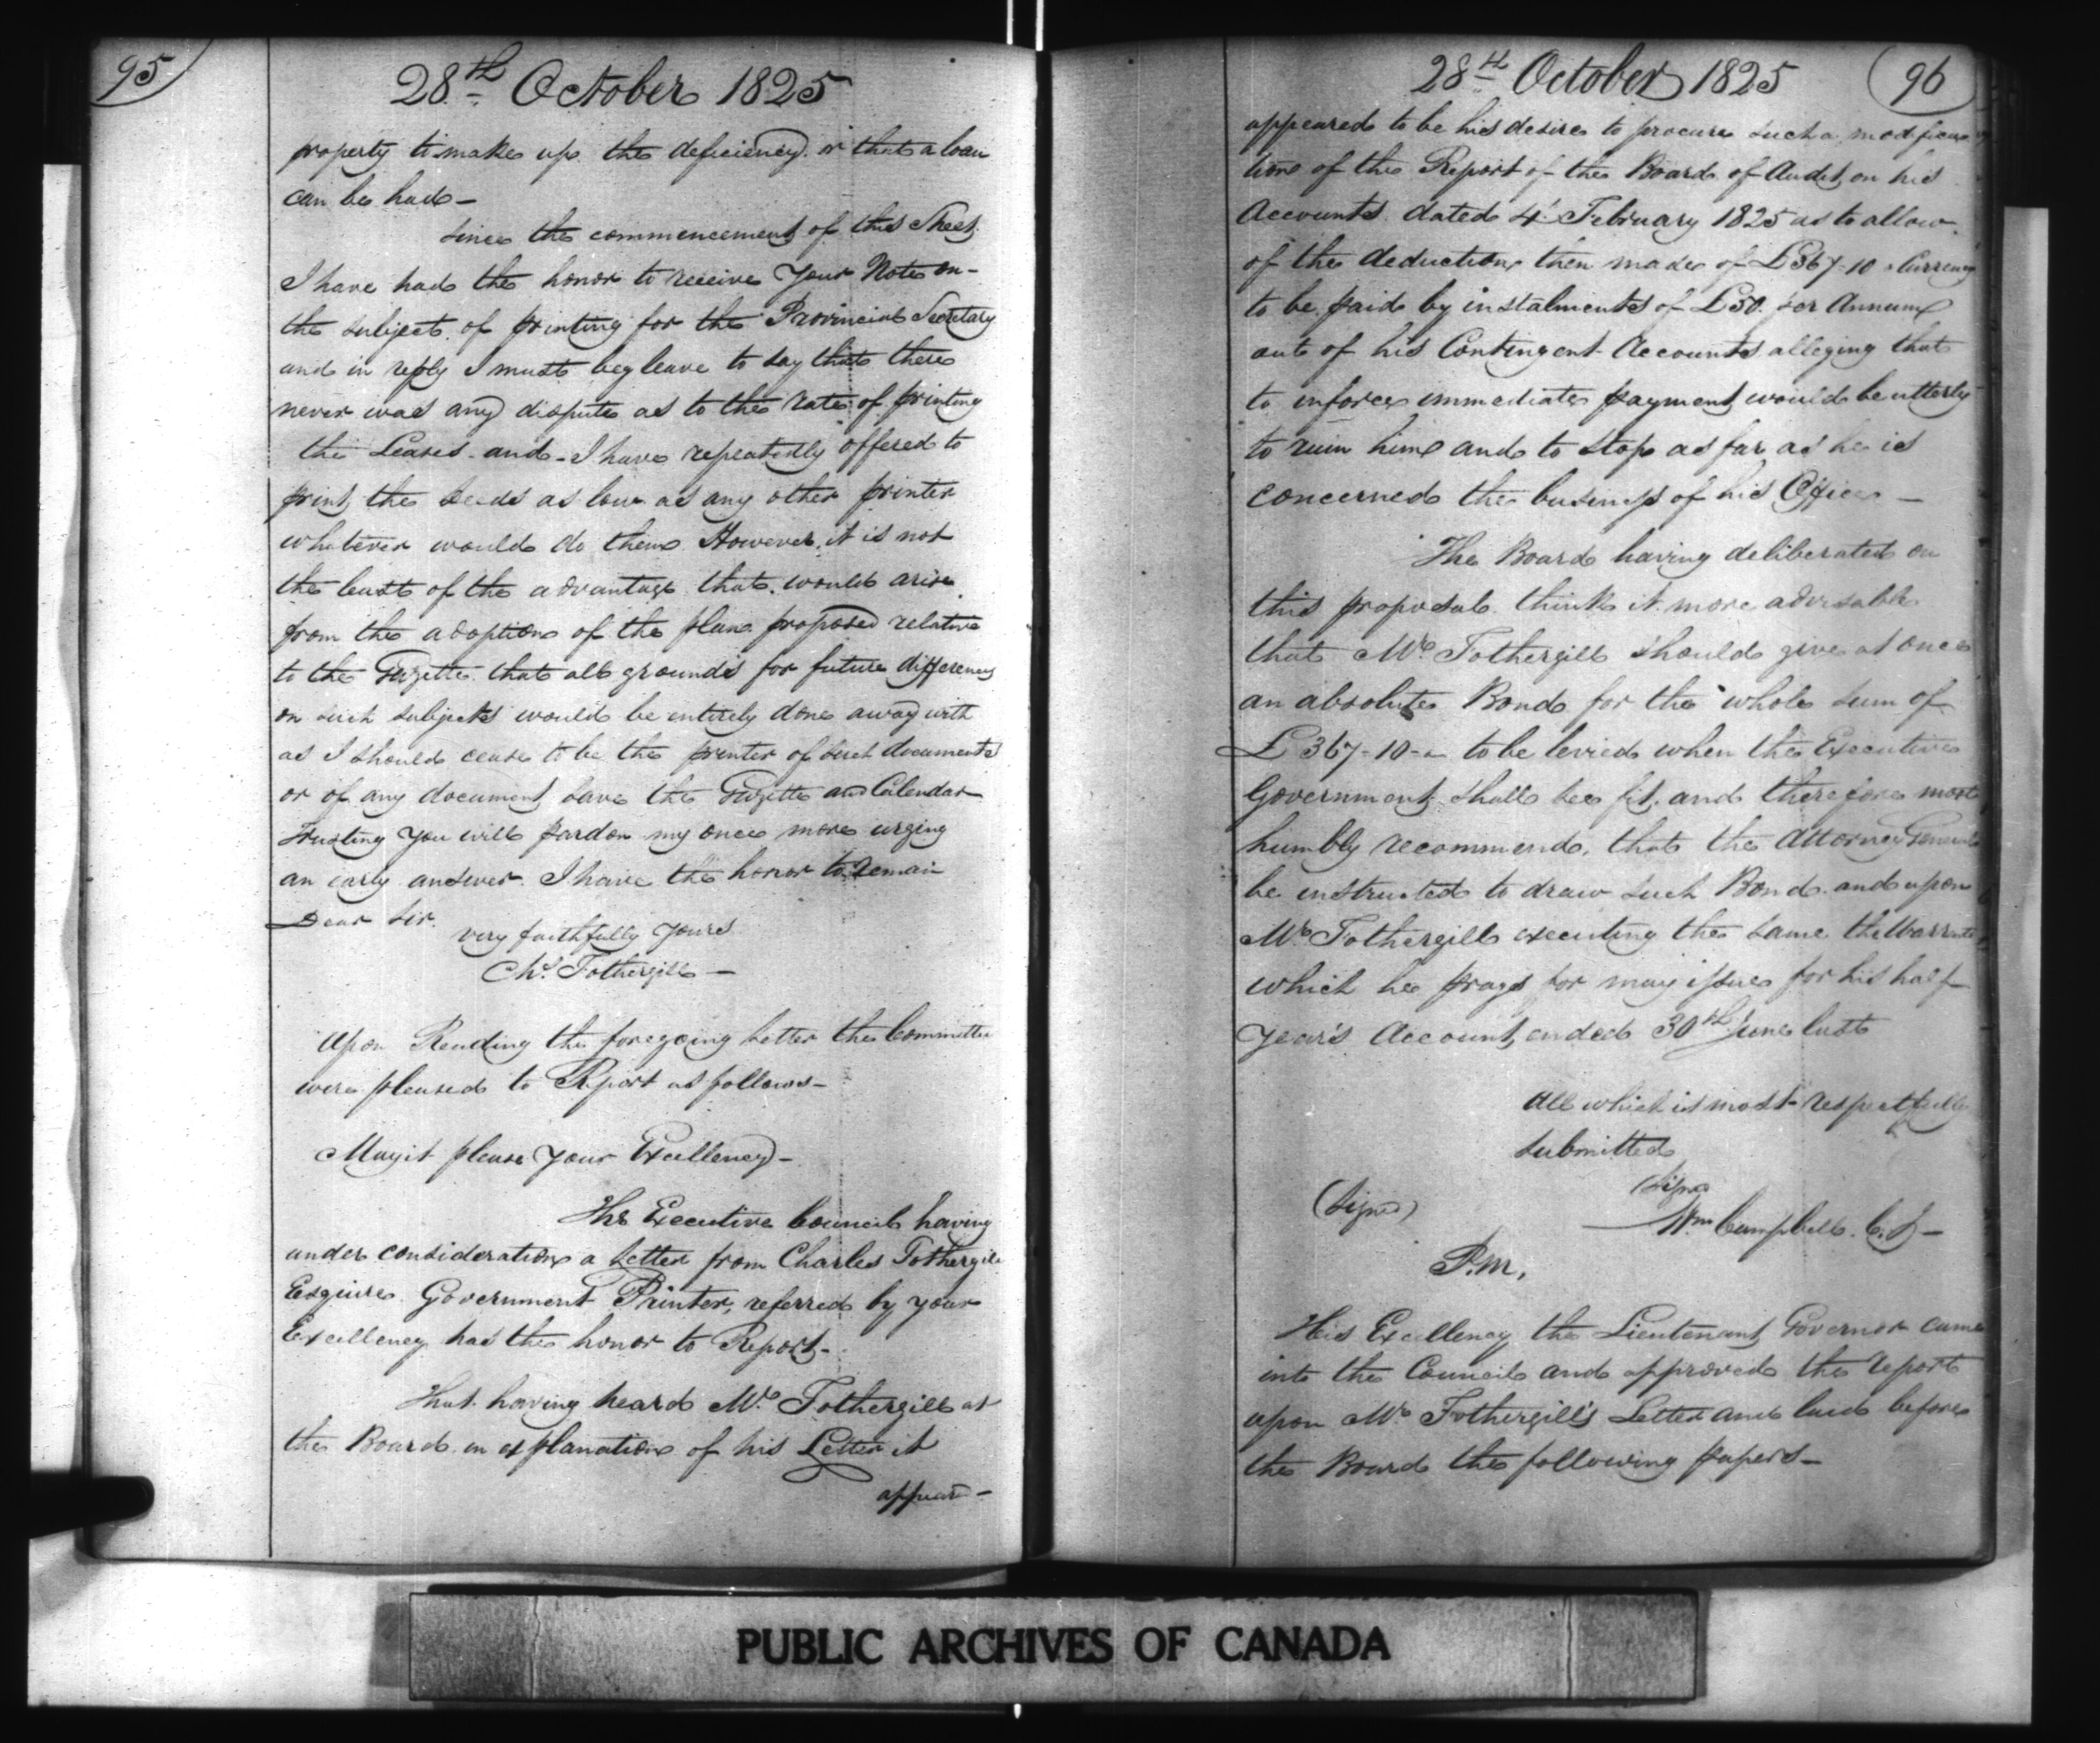 95
28th October 1825
property to make up the deficiency or that a loan
can be had -
Since the commencement of this Sheet
I have had the honor to receive Your Note on -
the subject of printing for the Provincial Secretary
and in reply I must beg leave to say that there
never was any dispute as to the rate of printing
the Leases and - I have repeatedly offered to
print the Deeds as low as any other printer
whatever would do them However it is not
the least of the advantage that would arise
from the adoption of the plan proposed relative
to the Gazette that all grounds for future differences
on such subjects would be entirely done away with
as I should cease to be the printer of such documents
or of any document save the Gazette and Calendar
Trusting you will pardon my once more urging
an early answer I have the honor to remain
Dear Sir
very faithfully Yours
Chs. Fothergill -
Upon Reading the foregoing letter the Committee
were pleased to Report as follows -
May it please Your Excellency -
The Executive Council having
under consideration a letter from Charles Fothergill
Esquire Government Printer, referred by your
Excellency has the honor to Report -
That having heard Mr. Fothergill at
the Board in explanation of his Letter it
appeared -
28th October 1825
96
appeared to be his desire to procure such a modifica
tion of the Report of the Board of Audit on his
Accounts dated 4th February 1825 as to allow
of the deduction then made of £367-10 - Currency
to be paid by instalments of £50. per Annum
out of his Contingent Accounts alleging that
to inforce immediate payment would be utterly
to ruin him and to stop as far as he is
concerned the business of his Office -
The Board having deliberated on
this proposal think it more advisable
that Mr. Fothergill should give at once
an absolute Bond for the whole sum of
£367-10-- to be levied when the Executive
Government shall see fit, and therefore most
humbly recommend, that the Attorney General
be instructed to draw such Bond and upon
Mr. Fothergill executing the same the Warrant
which he prays for may issue for his half
Year's Account ended 30th June last
All which is most respectfully
submitted
(Signed)
(Signed
Wm Campbell. C.J -
P.M,
His Excellency the Lieutenant Governor came
into the Council and approved the report
upon Mr. Fothergill's Letter and laid before
the Board the following papers -
PUBLIC ARCHIVES OF CANADA